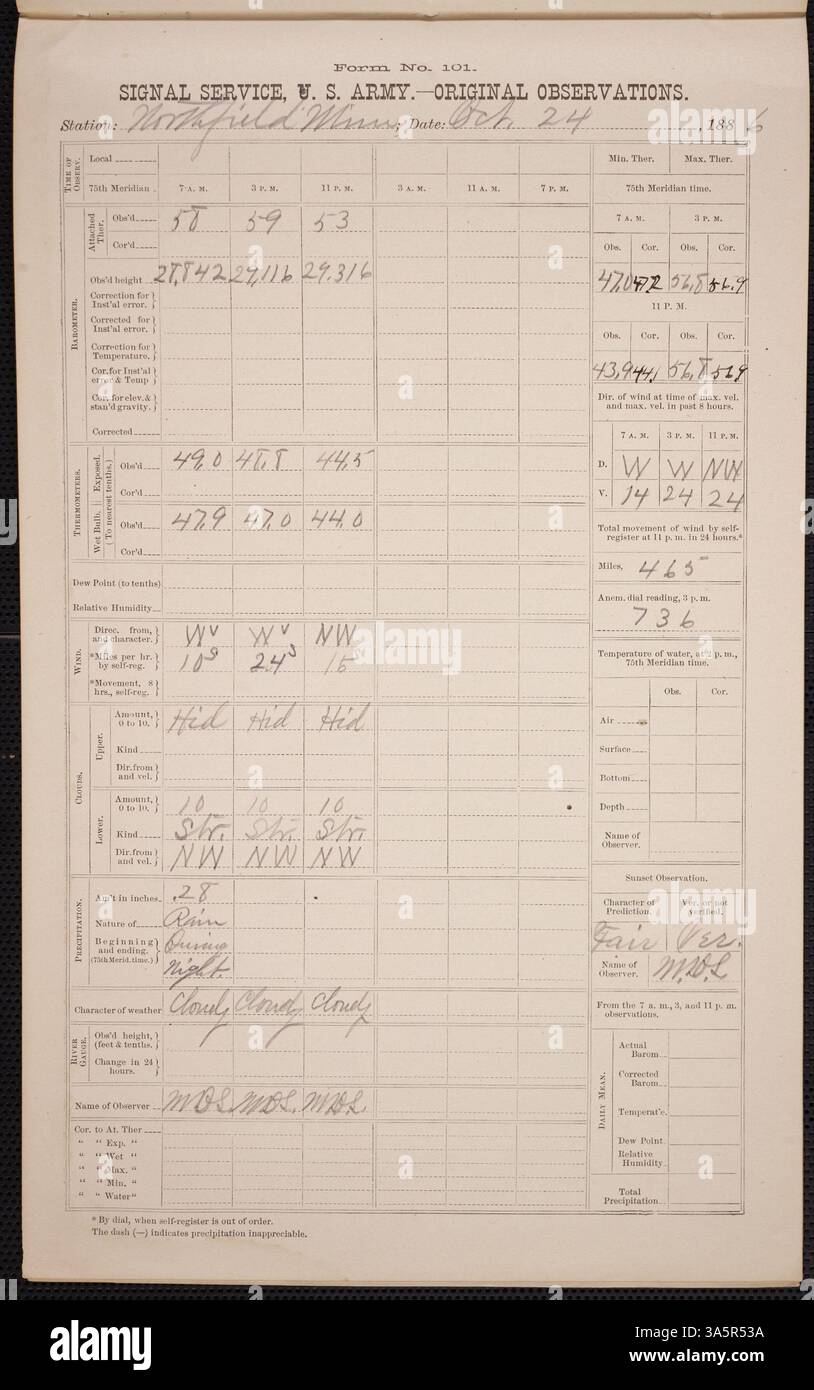 Form No. 101.
SIGNAL SERVICE, U. S. ARMY.—ORIGINAL OBSERVATIONS.
Station: Northfield Minn; Date: Oct. 24, 1886
TIME OF OBSERV.
Local
75th Meridian 7 A. M. 3 P. M. 11 P. M. 3 A. M. 11 A. M. 7 P. M.
BAROMETER.
Attached Ther.
Obs'd 58 59 53
Cor'd
Obs'd height 28,842 29,116 29.316
Correction for Inst'al error.
Corrected for Inst'al error.
Correction for Temperature.
Cor. for Inst'al error & Temp
Cor. for elev. & stan'd gravity.
Corrected
THERMOMETERS.
(To nearest tenths.)
Exposed.
Obs'd 49.0 48.8 44.5
Cor'd
Wet Bulb.
Obs'd 47.9 47.0 44.0
Cor'd
Dew Point (to tenths)
Relative Humidity
WIND.
Direc. from, and character. W v W v NW
*Miles per hr. by self-reg. 10 s 24 s 15
*Movement, 8 hrs., self-reg.
CLOUDS.
Upper.
Amount, 0 to 10. Hid Hid Hid
Kind
Dir. from and vel.
Lower.
Amount, 0 to 10. 10 10 10
Kind Str. Str. Str.
Dir. from and vel. NW NW NW
PRECIPITATION.
Am't in inches .28
Nature of Rain
Beginning and ending. (75th Merid. time.) During Night.
Character of weather Cloudy Cloudy Cloudy
RIVER GAUGE.
Obs'd height, (feet & tenths.
Change in 24 hours.
Name of Observer MDS MDS. MDS.
Cor. to At. Ther
“ “ Exp. “
“ “ Wet “
“ “ Max. “
“ “ Min. “
“ “ Water “
* By dial, when self-register is out of order.
The dash (—) indicates precipitation inappreciable.
Min. Ther. Max. Ther.
75th Meridian time.
7 A. M. 3 P. M.
Obs. Cor. Obs. Cor.
47.0 47.2 56.8 56.9
11 P. M.
Obs. Cor. Obs. Cor.
43.9 44.1 56.8 56.9
Dir. of wind at time of max. vel. and max. vel. in past 8 hours.
7 A. M. 3 P. M. 11 P. M.
D. W W NW
V. 14 24 24
Total movement of wind by self-register at 11 p. m. in 24 hours.*
Miles, 465
Anem. dial reading, 3 p. m.
736
Temperature of water, at 2 p. m., 75th Meridian time.
Obs. Cor.
Air
Surface
Bottom
Depth
Name of Observer.
Sunset Observation.
Character of Prediction. Ver. or not verified.
Fair Ver.
Name of Observer. M.D.S.
From the 7 a. m., 3, and 11 p. m. observations.
DAILY MEAN.
Actual Barom.
Corrected Barom.
Temperat'e.
Dew Point
Relative Humidity
Total Precipitation
alamy
alamy
alamy
alamy
Image ID: 3A5R53A
www.alamy.com